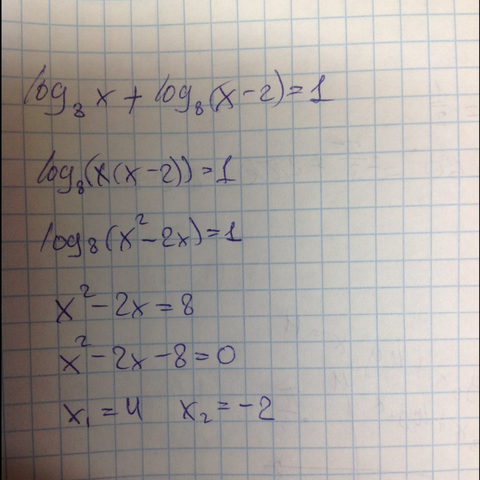 log₈ x + log₈(x-2)=1
log₈(x(x-2))=1
log₈(x²-2x)=1
x²-2x=8
x²-2x-8=0
x₁=4 x₂=-2